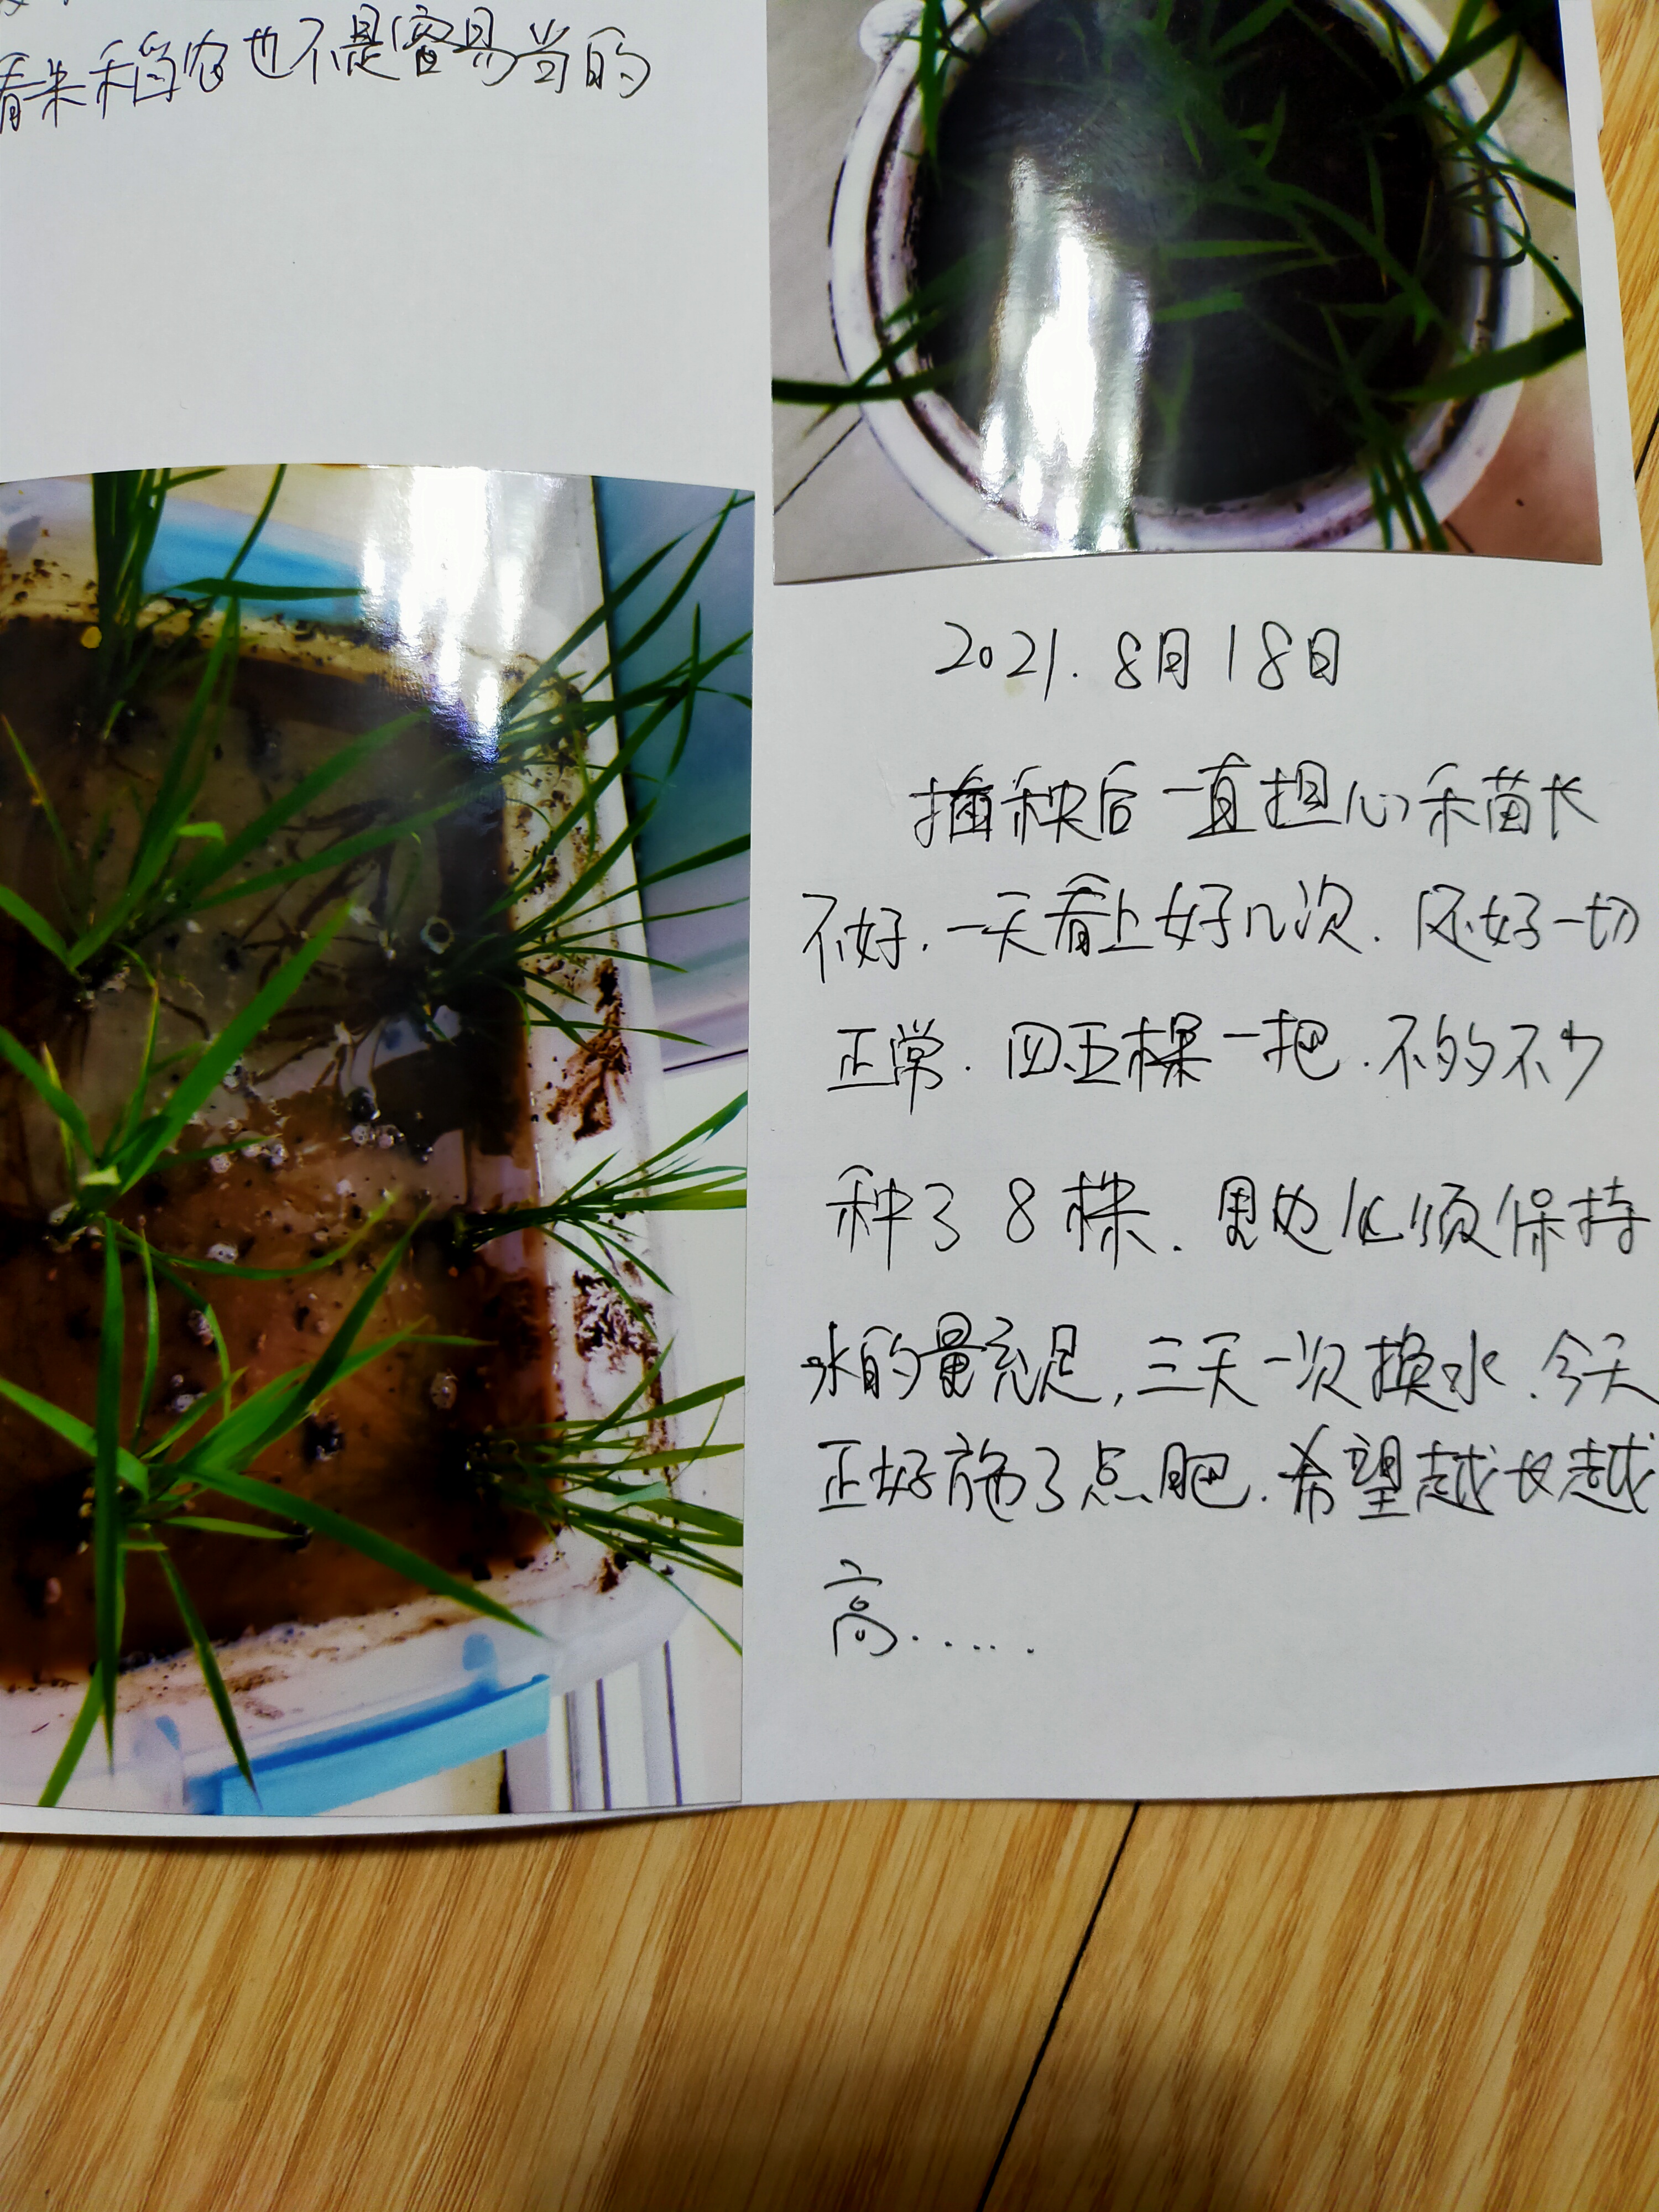 看来稻农也不是容易当的
2021.8月18日
插秧后一直担心禾苗长
不好.一天看上好几次.还好一切
正常.四五棵一把.不多不少
种了8株.周边必须保持
水的量充足,三天一次换水.今天
正好施了点肥.希望越长越
高......